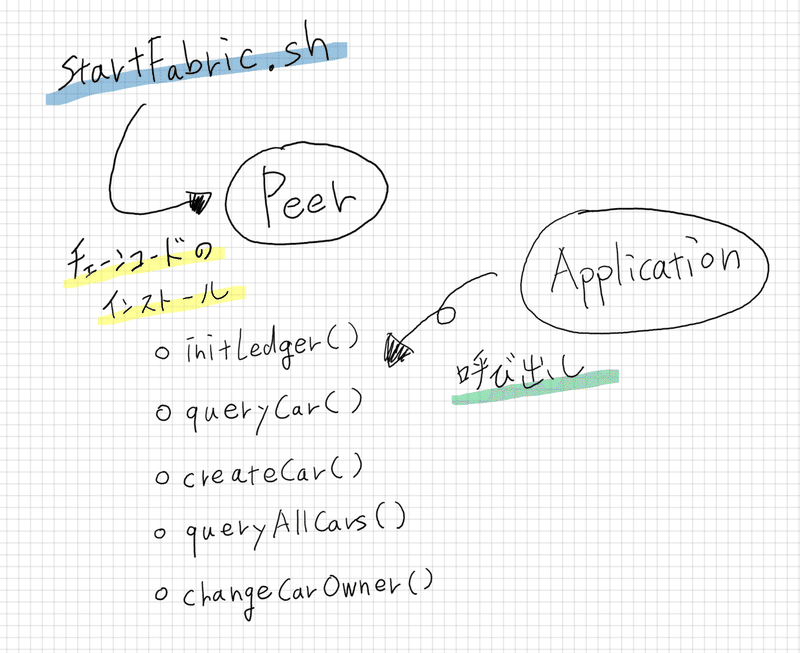 StartFabric.sh
Peer
チェーンコードの
インストール
Application
呼び出し
o initLedger()
o queryCar()
o createCar()
o queryAllCars()
o changeCarOwner()